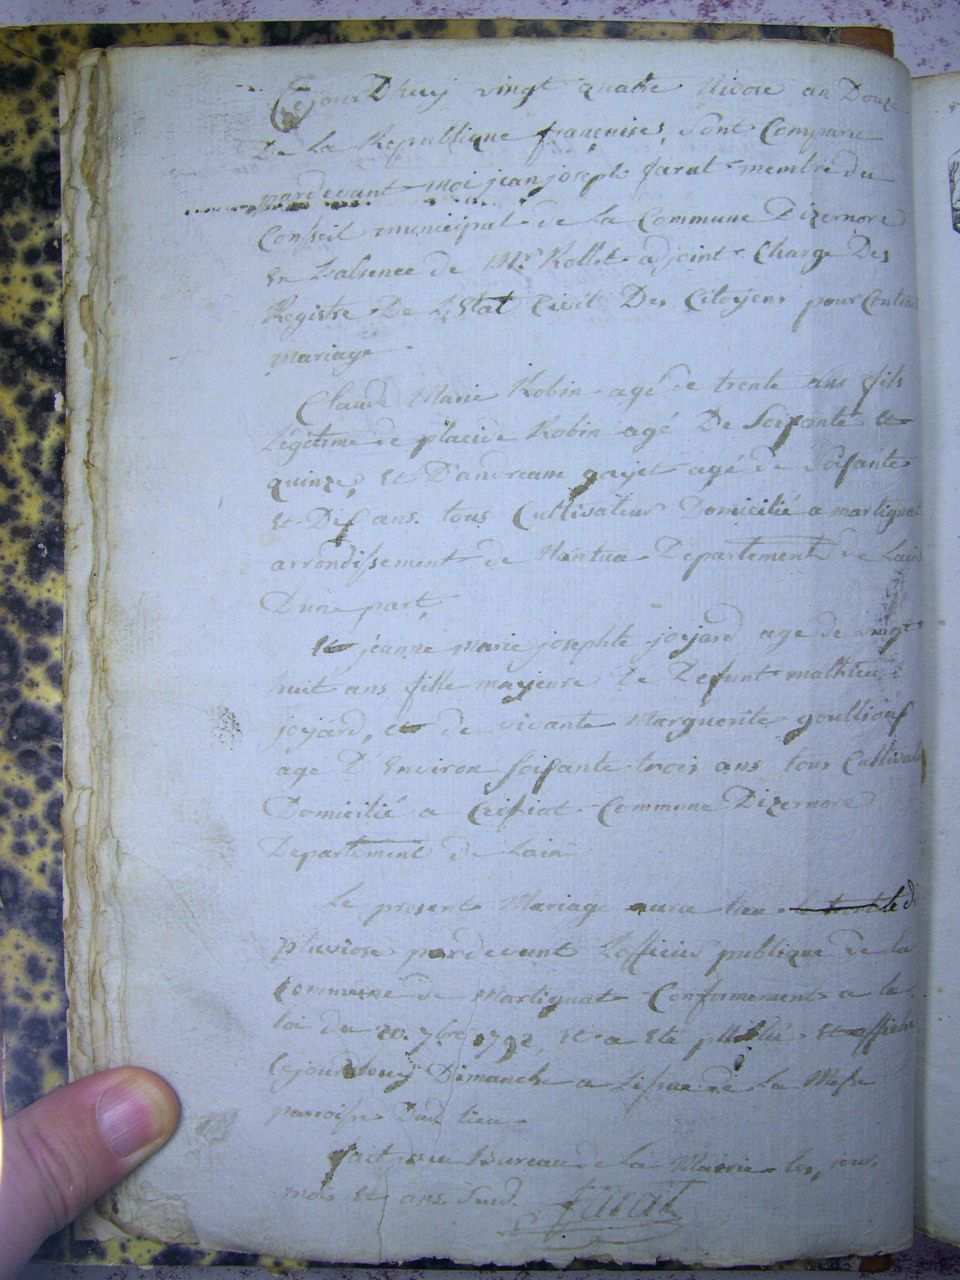 Cejour Dhuy vingt quatre Nivose an Douze
De La Republique françoises, Sont Comparu
pardevant moi jean joseph farat membre du
Conseil municipal de La Commune Dizernore
En Labsence de Mr. Rollet adjoint Chargé Des
Registre De L'Etat Civil Des Citoyens pour Contra
mariage
Claude Marie Robin agé de trente ans fils
Légitime de placide Robin agé De Soisante et
quinze, et D'andreane gajet agé de Soisante
et Dis ans tous Cultivateur Domicilié a martignat
arrondissement de Nantua Departement de Lain
Dune part,
Et jéanne marie josephte jojard age de vingt
huit ans fille majeure De Defunt mathieu
jojard, et de vivante Marguerite goullious
age D'Environ soisante trois ans tous Cultivate
Domicilié a Ceissiat Commune Dizernore
Departement de Lain
Le present Mariage aura lieu
pluviose pardevant L'officier publique de la
Commune de Martignat Conformement a la
loi du 20. 7bre 1792, et a Eté publié et affiché
Cejourdhuy Dimanche a Lissue de La Messe
paroisse Dud. lieu
fait au Bureau de la Mairie les, jour,
mois et ans Susd. farat